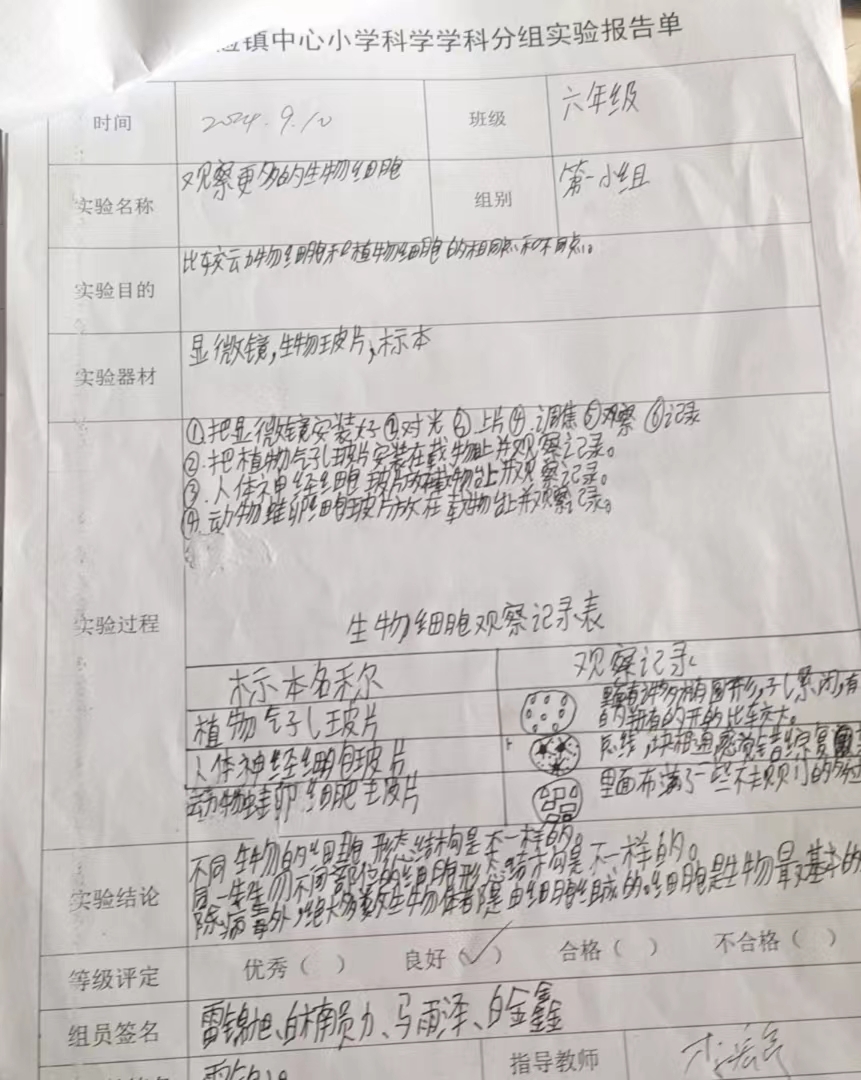 镇中心小学科学学科分组实验报告单
时间 2024.9.10 班级 六年级
实验名称 观察更多的生物细胞 组别 第一小组
实验目的 比较动物细胞和植物细胞的相同点和不同点。
实验器材 显微镜,生物玻片,标本
实验过程
①.把显微镜安装好②对光③上片④.调焦⑤观察⑥记录
②.把植物气孔玻片安装在载物台上并观察记录。
③.人体神经细胞玻片放载物台上并观察记录。
④.动物蛙卵细胞玻片放在载物台上并观察记录。
生物细胞观察记录表
标本名称 观察记录
植物气孔玻片
的 有的开的比较大。
人体神经细胞玻片
动物蛙卵细胞玻片 里面布满了一些不规则的
实验结论
不同生物的细胞形态结构是不一样的。
同一生物不同部位的细胞形态结构是不一样的。
除病毒外,绝大多数生物体都是由细胞组成的。细胞是生物最基本的
等级评定 优秀( ) 良好(✓) 合格( ) 不合格( )
组员签名 雷锦旭、白楠、马雨泽、白金鑫
指导教师